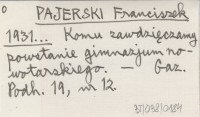 PAJERSKI Franciszek
1931... Komu zawdzięczamy
powstanie gimnazjum no-
wotarskiego. — Gaz.
Podh. 19, nr 12.